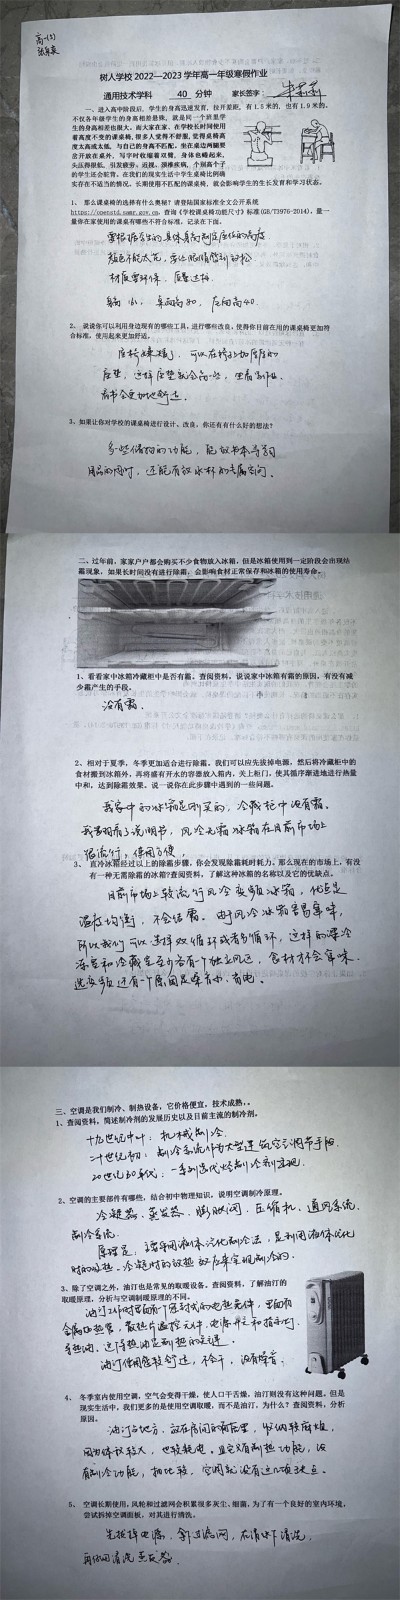 高一(3)
树人学校 2022—2023 学年高一年级寒假作业
通用技术学科 40 分钟 家长签字:
一、进入高中阶段后，学生的身高迅速发育，拉开差距，有 1.5 米的，也有 1.9 米的。
不仅各年级学生的身高相差悬殊，就是同一个班里学
生的身高相差也很大。而大家在家、在学校长时间使用
着高度不变的课桌椅，很多人觉得不舒服，觉得桌椅高
度太高或太低，与自己的身高不匹配，坐在桌边两腿要
岔开放在桌外，写字时收缩着双臂，身体也蜷起来，
头压得很低，引发疲劳、近视、颈椎疾病，个别高个子
的学生还会驼背。在我们的现实生活中学生桌椅比例确
实存在不适当的情况，长期使用不匹配的课桌椅，就会影响学生的生长发育和学习状态。
1、 那么课桌椅的选择有什么奥秘？请登陆国家标准全文公开系统
https://openstd.samr.gov.cn，查询《学校课桌椅功能尺寸》标准(GB/T3976-2014)，量一
量你在家使用的课桌有哪些不符合标准，记录在下面。
要根据学生的具体身高制定座位的高度
颜色不能太花，要让眼睛感到放松
材质要环保，质量达标
身高 161，桌面高80，座面高40.
2、 说说你可以利用身边现有的哪些工具，进行哪些改良，使得你目前在用的课桌椅更加符
合标准，使用起来更加舒适。
座椅矮，可以在椅子上加厚厚的
座垫，这样座垫就会高一些，坐着写作业，
看书会更加地舒适。
3、如果让你对学校的课桌椅进行设计、改良，你还有有什么好的想法？
多些储物的功能，配放书本学习
用品的同时，还能有放水杯的专属空间。
二、过年前，家家户户都会购买不少食物放入冰箱，但是冰箱使用到一定阶段会出现结
霜现象，如果长时间没有进行除霜，会影响食材正常保存和冰箱的使用寿命。
1、看看家中冰箱冷藏柜中是否有霜。查阅资料，说说家中冰箱有霜的原因，有没有减
少霜产生的手段。
没有霜.
2、相对于夏季，冬季更加适合进行除霜。我们可以应先拔掉电源，然后将冷藏柜中的
食材搬到冰箱外，再将盛有开水的容器放入箱内，关上柜门，使其循序渐进地进行热量
中和，达到除霜效果。说一说你在此步骤中遇到的一些问题。
我家中的冰箱是刚买的，冷藏柜中没有霜。
我看的有3说明书，风冷无霜冰箱在目前市场上
很流行，使用方便，
3、 直冷冰箱经过以上的除霜步骤，你会发现除霜耗时耗力。那么现在的市场上，有没
有一种无需除霜的冰箱？查阅资料，了解这种冰箱的名称以及它的优缺点。
目前市场上较流行风冷变频冰箱，优点是
温度均衡，不会结霜。由于风冷冰箱容易串味，
所以我们可以选择双循环或者多循环，这样的深冷
冻室和冷藏室至少各有一个独立风道，食材才不会串味.
选变频还有一个原因是噪音小，省电。
三、空调是我们制冷、制热设备，它价格便宜，技术成熟，。
1、查阅资料，简述制冷剂的发展历史以及目前主流的制冷剂。
十九世纪中叶：机械制冷.
二十世纪初：制冷系统作为大型建筑空气调节手段.
20世纪30年代：一系列卤代烃制冷剂出现.
2、空调的主要部件有哪些，结合初中物理知识，说明空调制冷原理。
冷凝器、蒸发器、膨胀阀、压缩机、通风系统.
制冷系统.
原理是：通常用液体汽化制冷法，是利用液体汽化
时的吸热、冷凝时的放热效应来实现制冷的.
3、除了空调之外，油汀也是常见的取暖设备。查阅资料，了解油汀的
取暖原理，分析与空调制暖原理的不同。
油汀工作时里面有个密封式的电热元件，里面有
金属电热管，散热片温控元件，电源开关和指示灯
导热油，这导热油是制热的关键。
油汀使用感较舒适，不干，没有噪音.
4、 冬季室内使用空调，空气会变得干燥，使人口干舌燥，油汀则没有这种问题。但是
现实生活中，我们更多的是使用空调取暖，而不是油汀，为什么？查阅资料，分析
原因。
油汀占地方，放在房间的角落里，收纳较麻烦，
因为体积较大，也较耗电。且它只有制热功能，没
有制冷功能，相比较，空调就没有这几项缺点。
5、 空调长期使用，风轮和过滤网会积累很多灰尘、细菌，为了有一个良好的室内环境，
尝试拆掉空调面板，对其进行清洗。
先拔掉电源，拿过滤网，在清水下清洗，
再休闲清洗蒸发器.